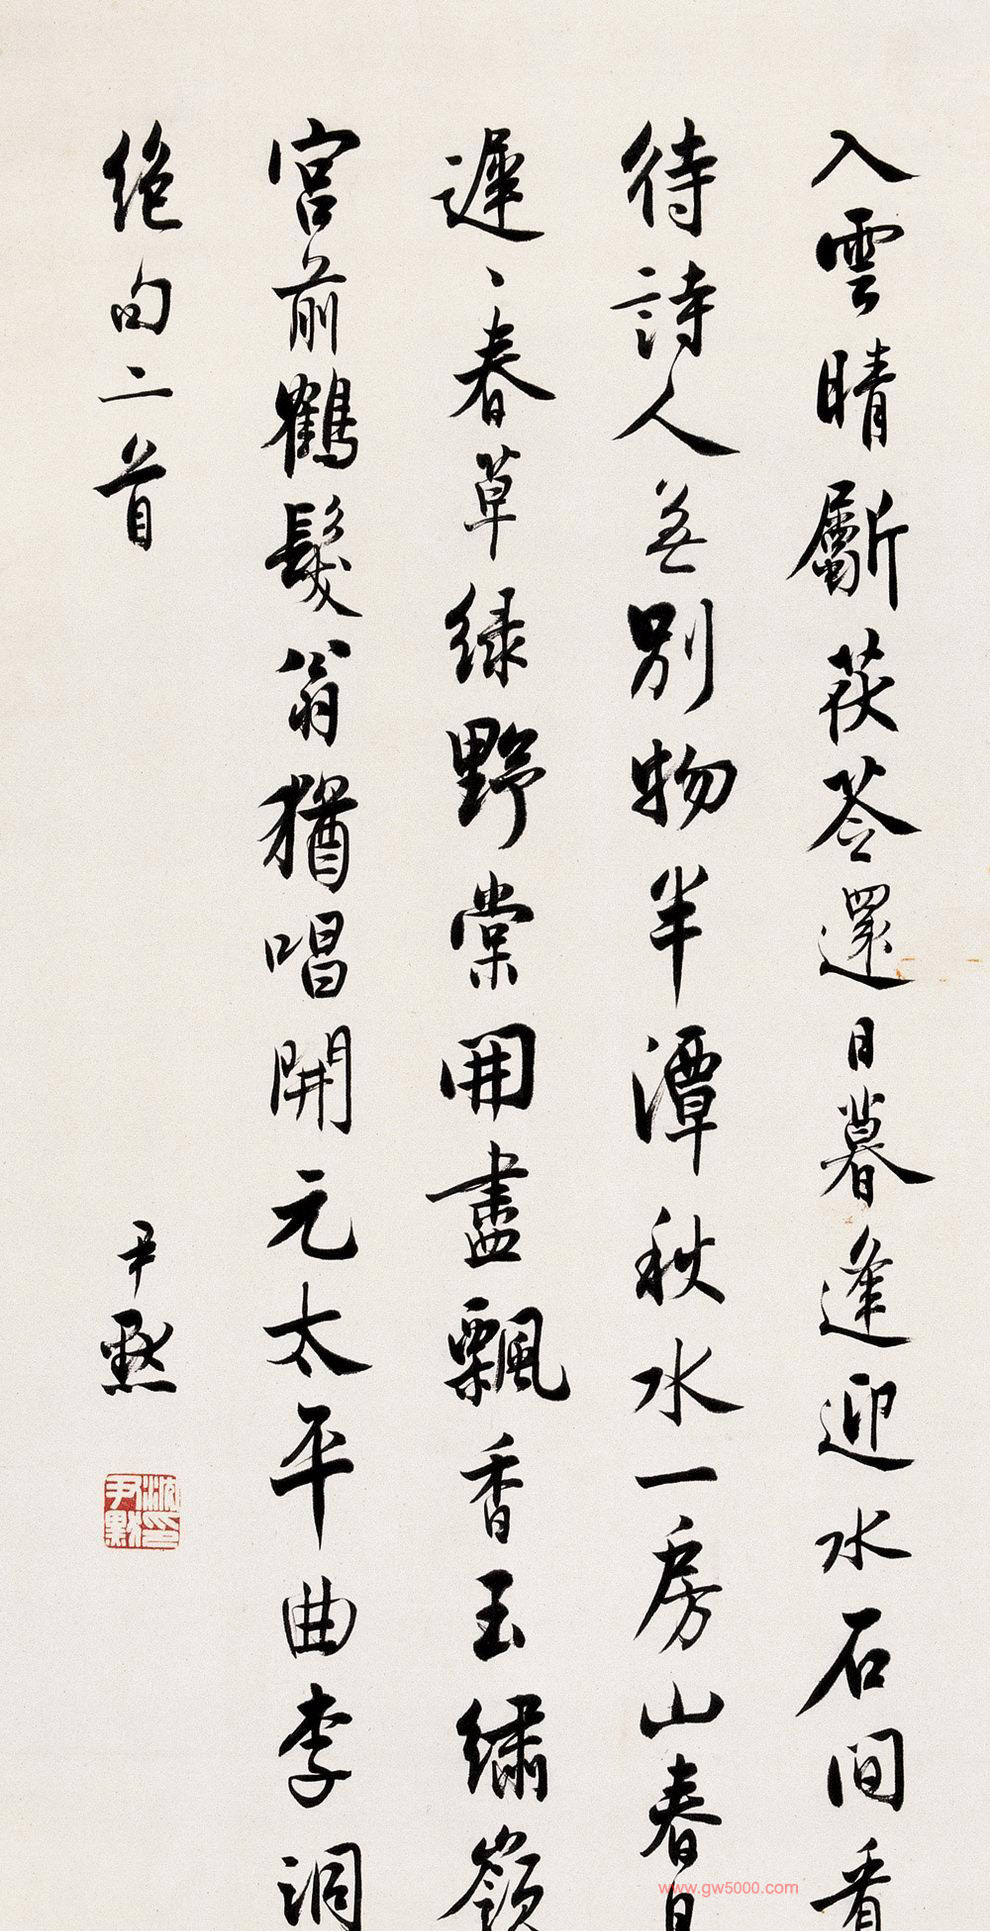 入雲晴劚茯苓還日暮逢迎水石間看
待詩人無別物半潭秋水一房山春日
遲〻春草綠野棠開盡飄香玉繡嶺
宮前鶴髮翁猶唱開元太平曲李洞
絕句二首
尹默
沈尹默印
www.gw5000.com